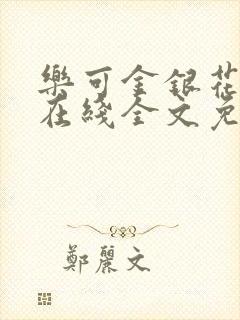 樂可金銀花
在綫全文免
鄭麗文